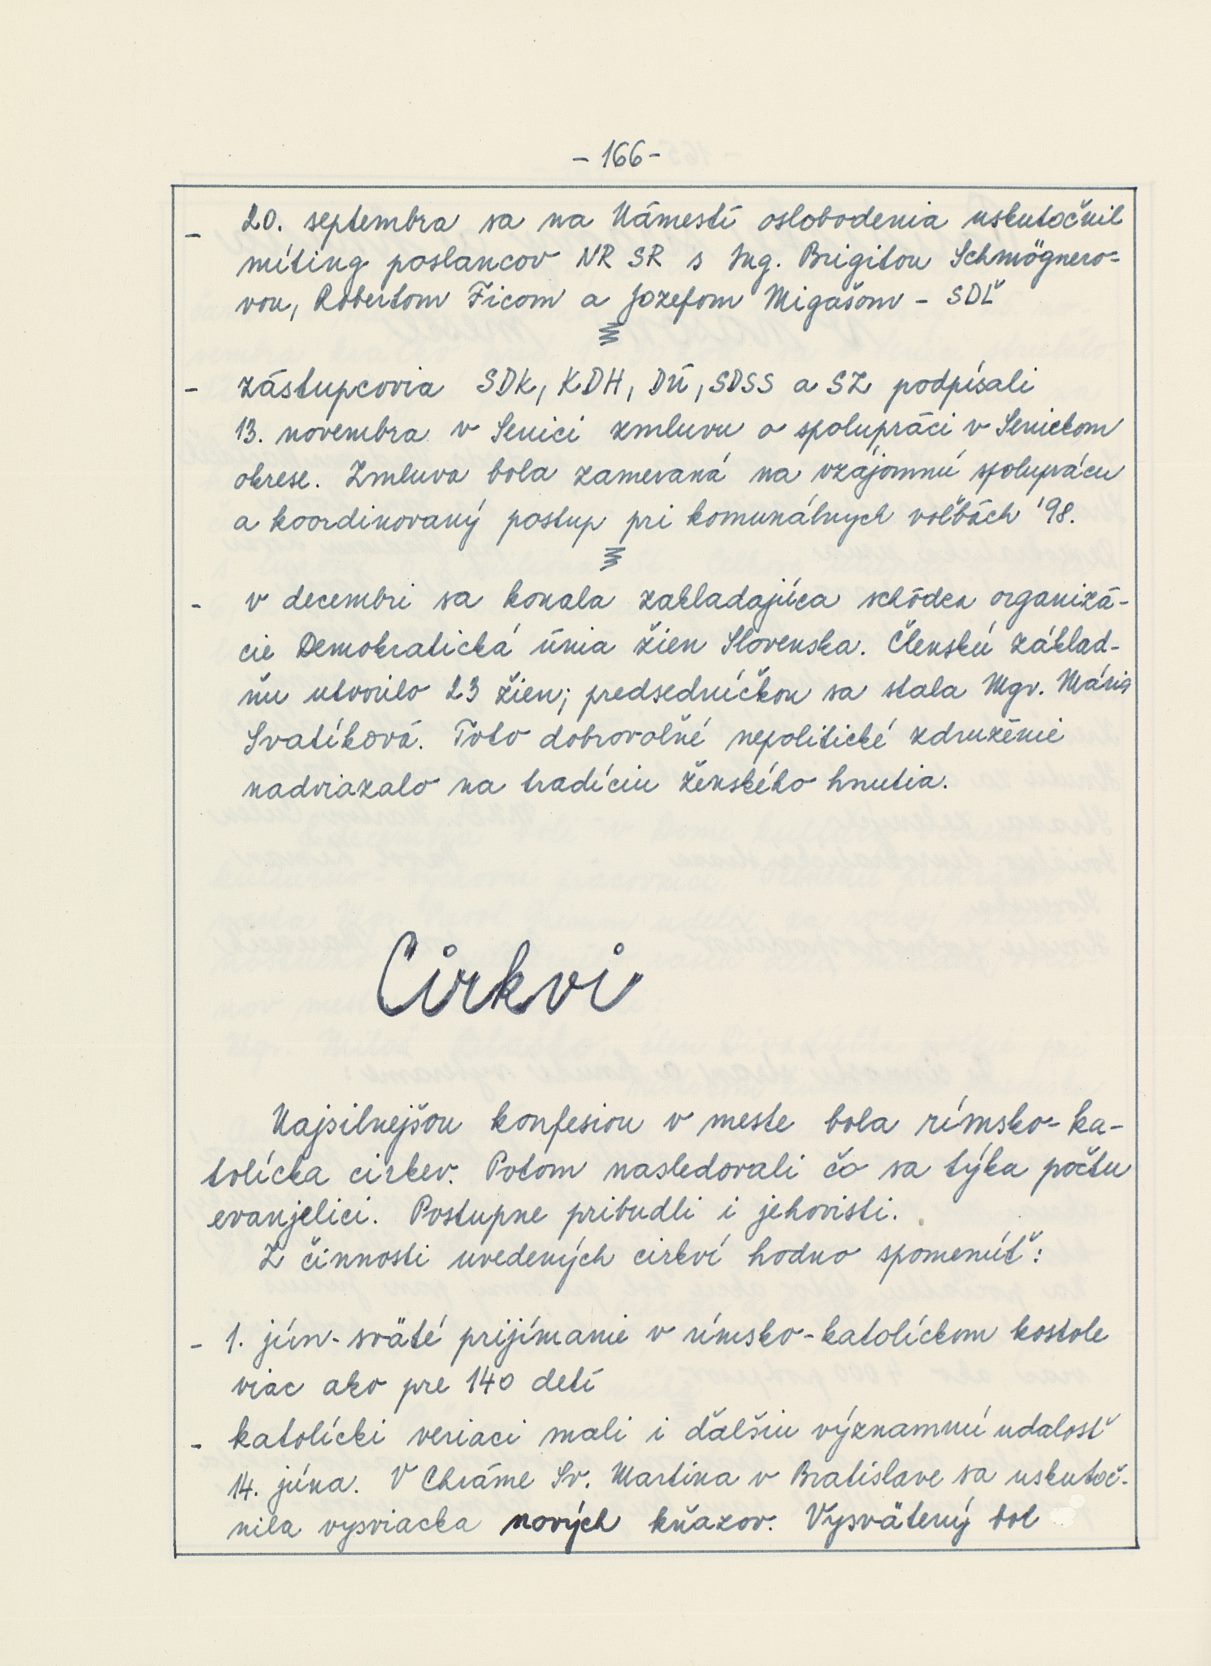 - 166 -
- 20. septembra sa na Námestí oslobodenia uskutočnil
míting poslancov NR SR s Ing. Brigitou Schmögnero-
vou, Robertom Ficom a Jozefom Migašom - SDĽ
- zástupcovia SDK, KDH, DÚ, SDSS a SZ podpísali
13. novembra v Senici zmluvu o spolupráci v Senickom
okrese. Zmluva bola zameraná na vzájomnú spoluprácu
a koordinovaný postup pri komunálnych voľbách '98.
- v decembri sa konala zakladajúca schôdza organizá-
cie Demokratická únia žien Slovenska. Členskú základ-
ňu utvorilo 23 žien; predsedníčkou sa stala Mgr. Mária
Svatíková. Toto dobrovoľné nepolitické združenie
nadviazalo na tradíciu ženského hnutia.
Cirkvi
Najsilnejšou konfesiou v meste bola rímsko-ka-
tolícka cirkev. Potom nasledovali čo sa týka počtu
evanjelici. Postupne pribudli i jehovisti.
Z činnosti uvedených cirkví hodno spomenúť:
- 1. jún - sväté prijímanie v rímsko-katolíckom kostole
viac ako pre 140 detí
- katolícki veriaci mali i ďalšiu významnú udalosť
14. júna. V Chráme Sv. Martina v Bratislave sa uskutoč-
nila vysviacka nových kňazov. Vysvätený bol